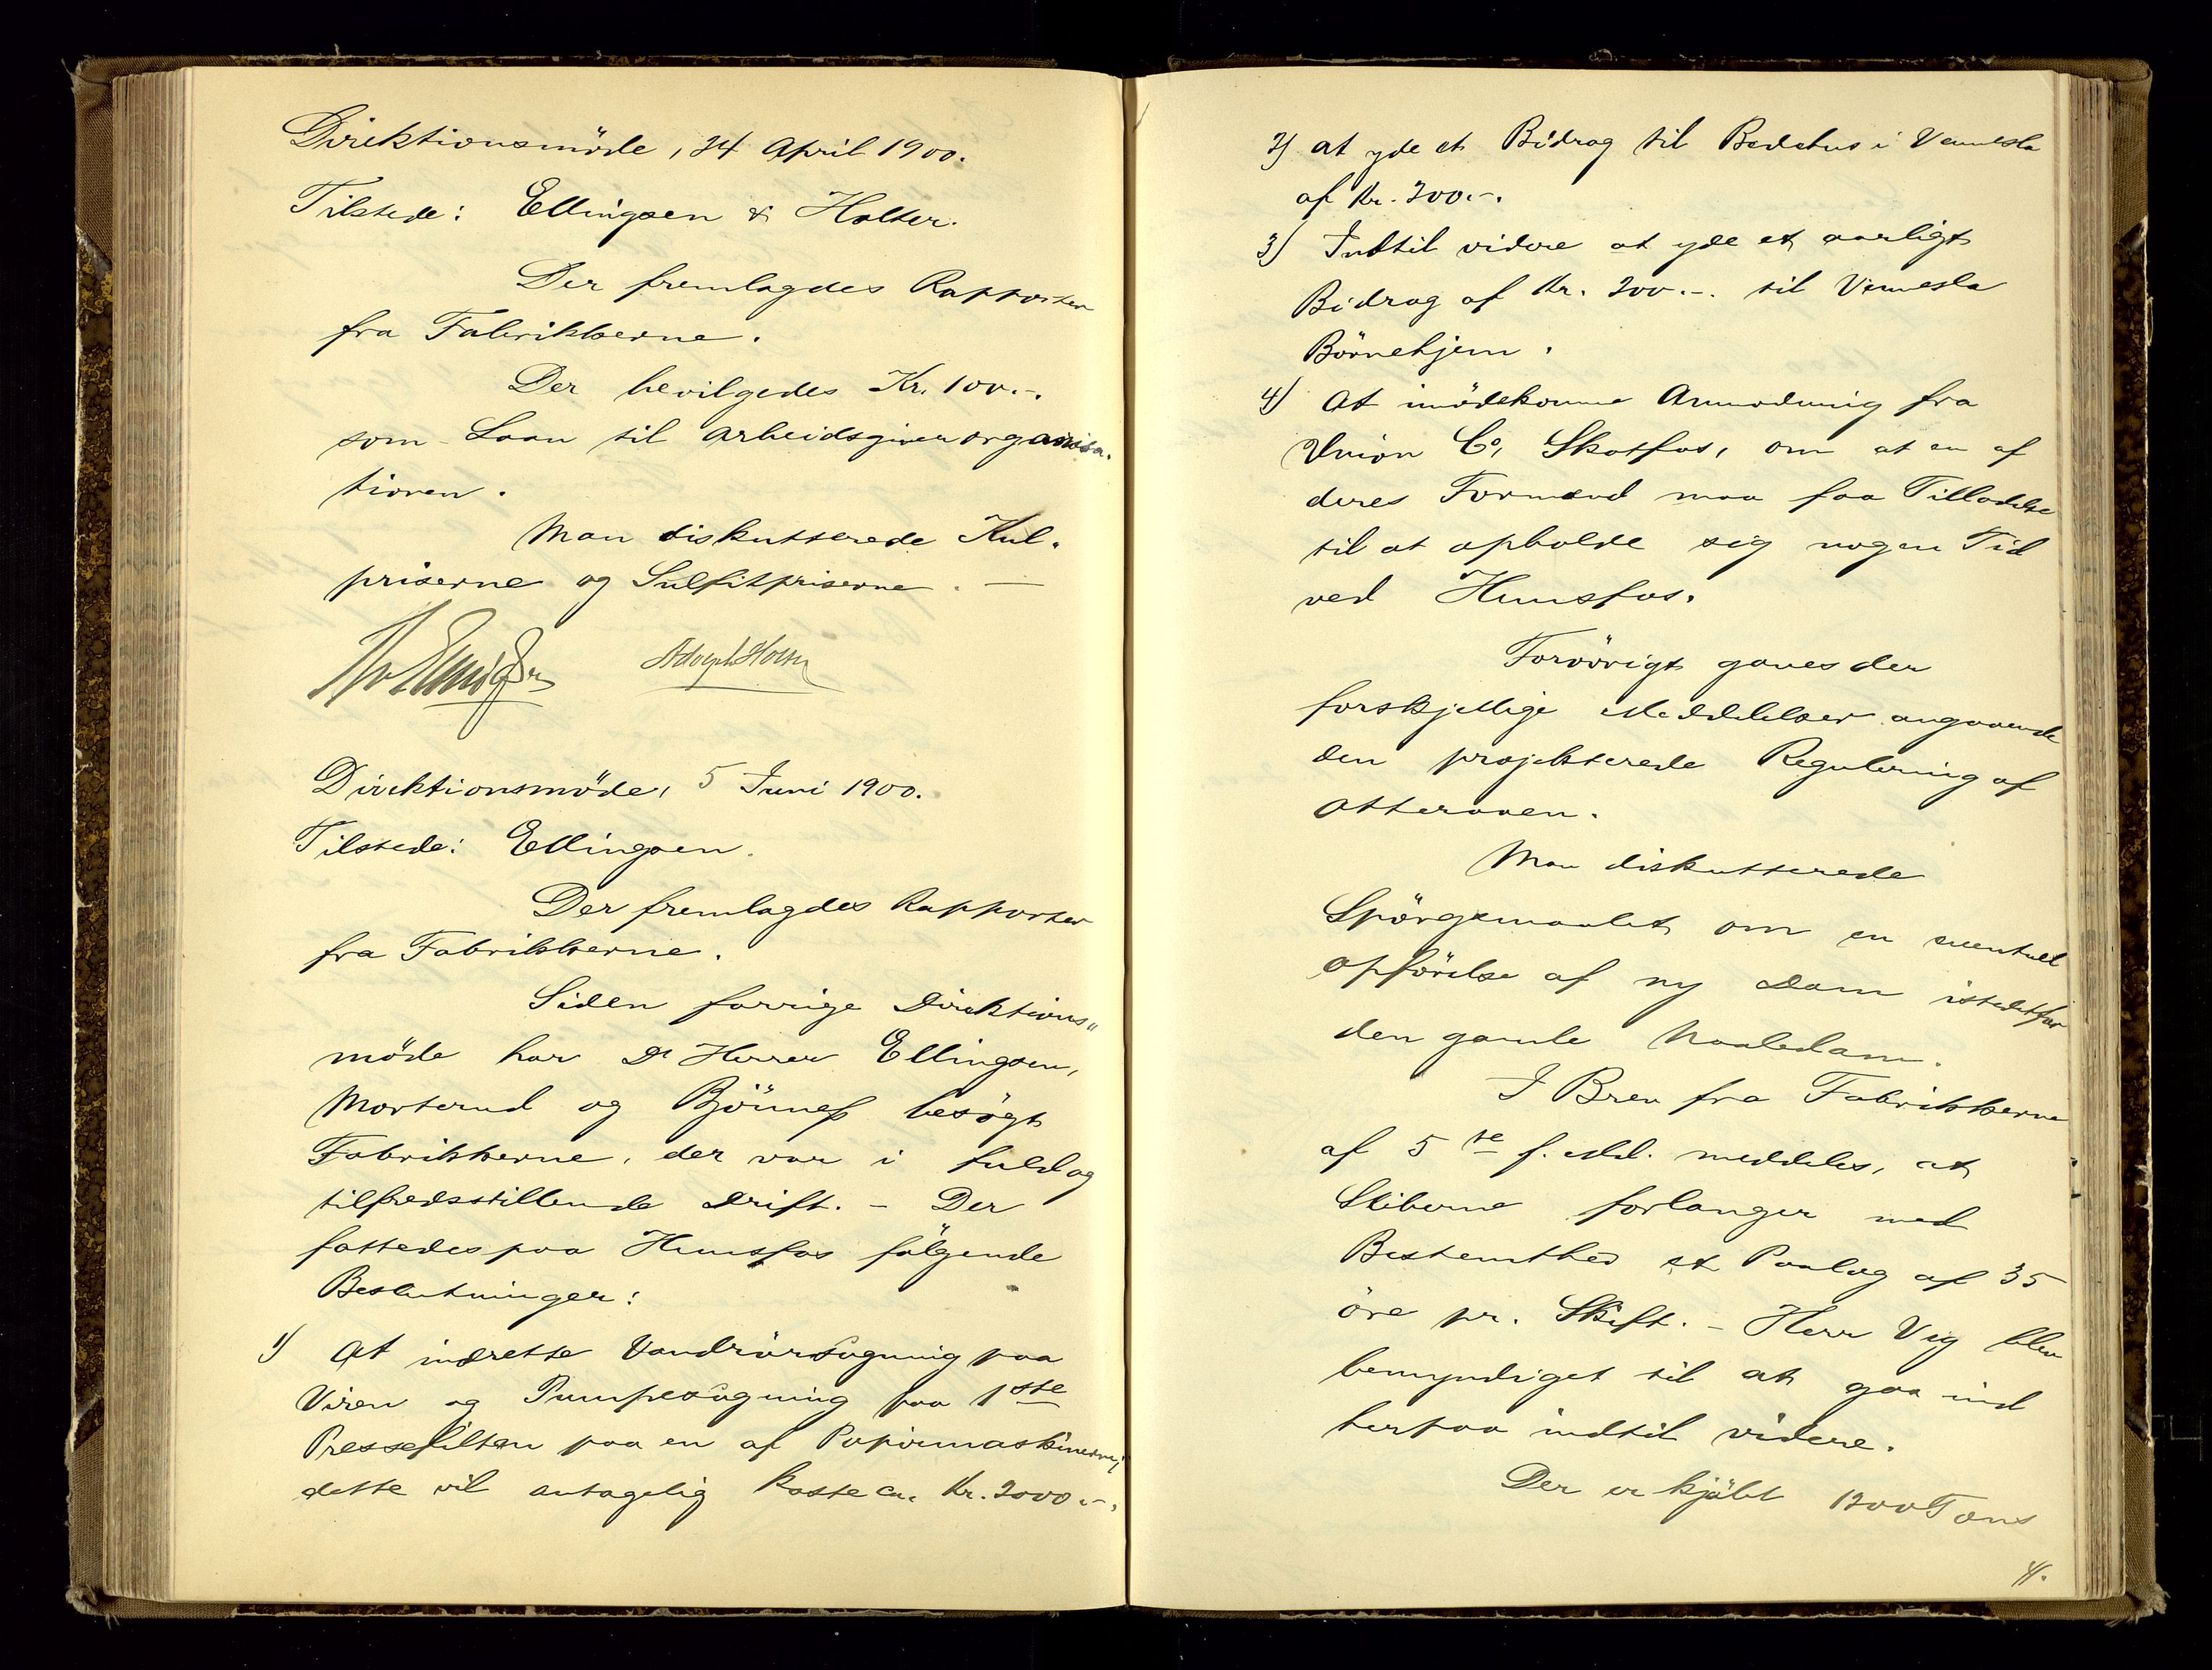 Direktionsmöde, 24 April 1900.
Tilstede: Ellingsen & Holter.
Der fremlagdes Rapporter
fra Fabrikkerne.
Der bevilgedes Kr. 100.-.
som Laan til Arbeidsgiverorganisa-
tionen.
Man diskutterede Kul-
priserne og Sulfitpriserne. —
Direktionsmöde, 5 Juni 1900.
Tilstede: Ellingsen.
Der fremlagdes Rapporter
fra Fabrikkerne.
Siden forrige Direktions"
möde har Dr Herrer Ellingsen,
Morterud og Björness besögt
Fabrikkerne, der var i fuld og
tilfredsstillende Drift. - Der
fattedes paa Hunsfos fölgende
Beslutninger:
1) At indrette Vandrörsugning paa
Viren og Pumpesugning paa 1ste
Pressefilten paa en af Papirmaskinerne,
dette vil antagelig koste ca. Kr. 2000.-.
2) at yde et Bidrag til Bedehus i Vennesla
af Kr. 200.-.
3) Indtil videre at yde et aarligt
Bidrag af Kr. 200.-. til Vennesla
Börnehjem.
4) At imödekomme Anmodning fra
Union Co, Skotfos, om at en af
deres Formænd maa faa Tilladelse
til at opholde sig nogen Tid
ved Hunsfos.
Forövrigt gaves der
forskjellige Meddelelser angaaende
den projekterede Regulering af
Otteraaen.
Man diskutterede
Spörgsmaalet om en eventuel
Opförelse af ny Dam istedetfor
den gamle Naaledam.
I Brev fra Fabrikkerne
af 5te f. Md. meddeles, at
Sliberne forlanger med
Bestemthed et Paalæg af 35
öre pr. Skift. - Herr Vig blev
bemyndiget til at gaa ind
herpaa indtil videre.
Der er kjöbt 1200 Tons